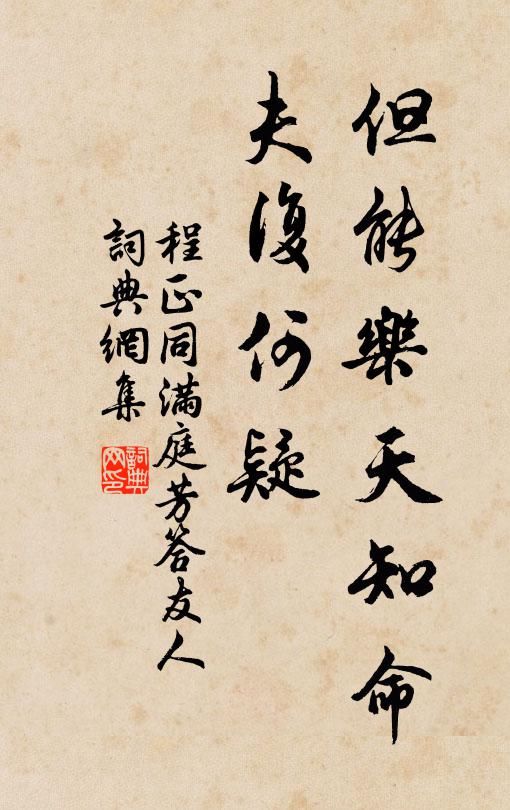 但能樂天知命
夫復何疑
程正同滿庭芳答友人
詞典網集
詞典网印